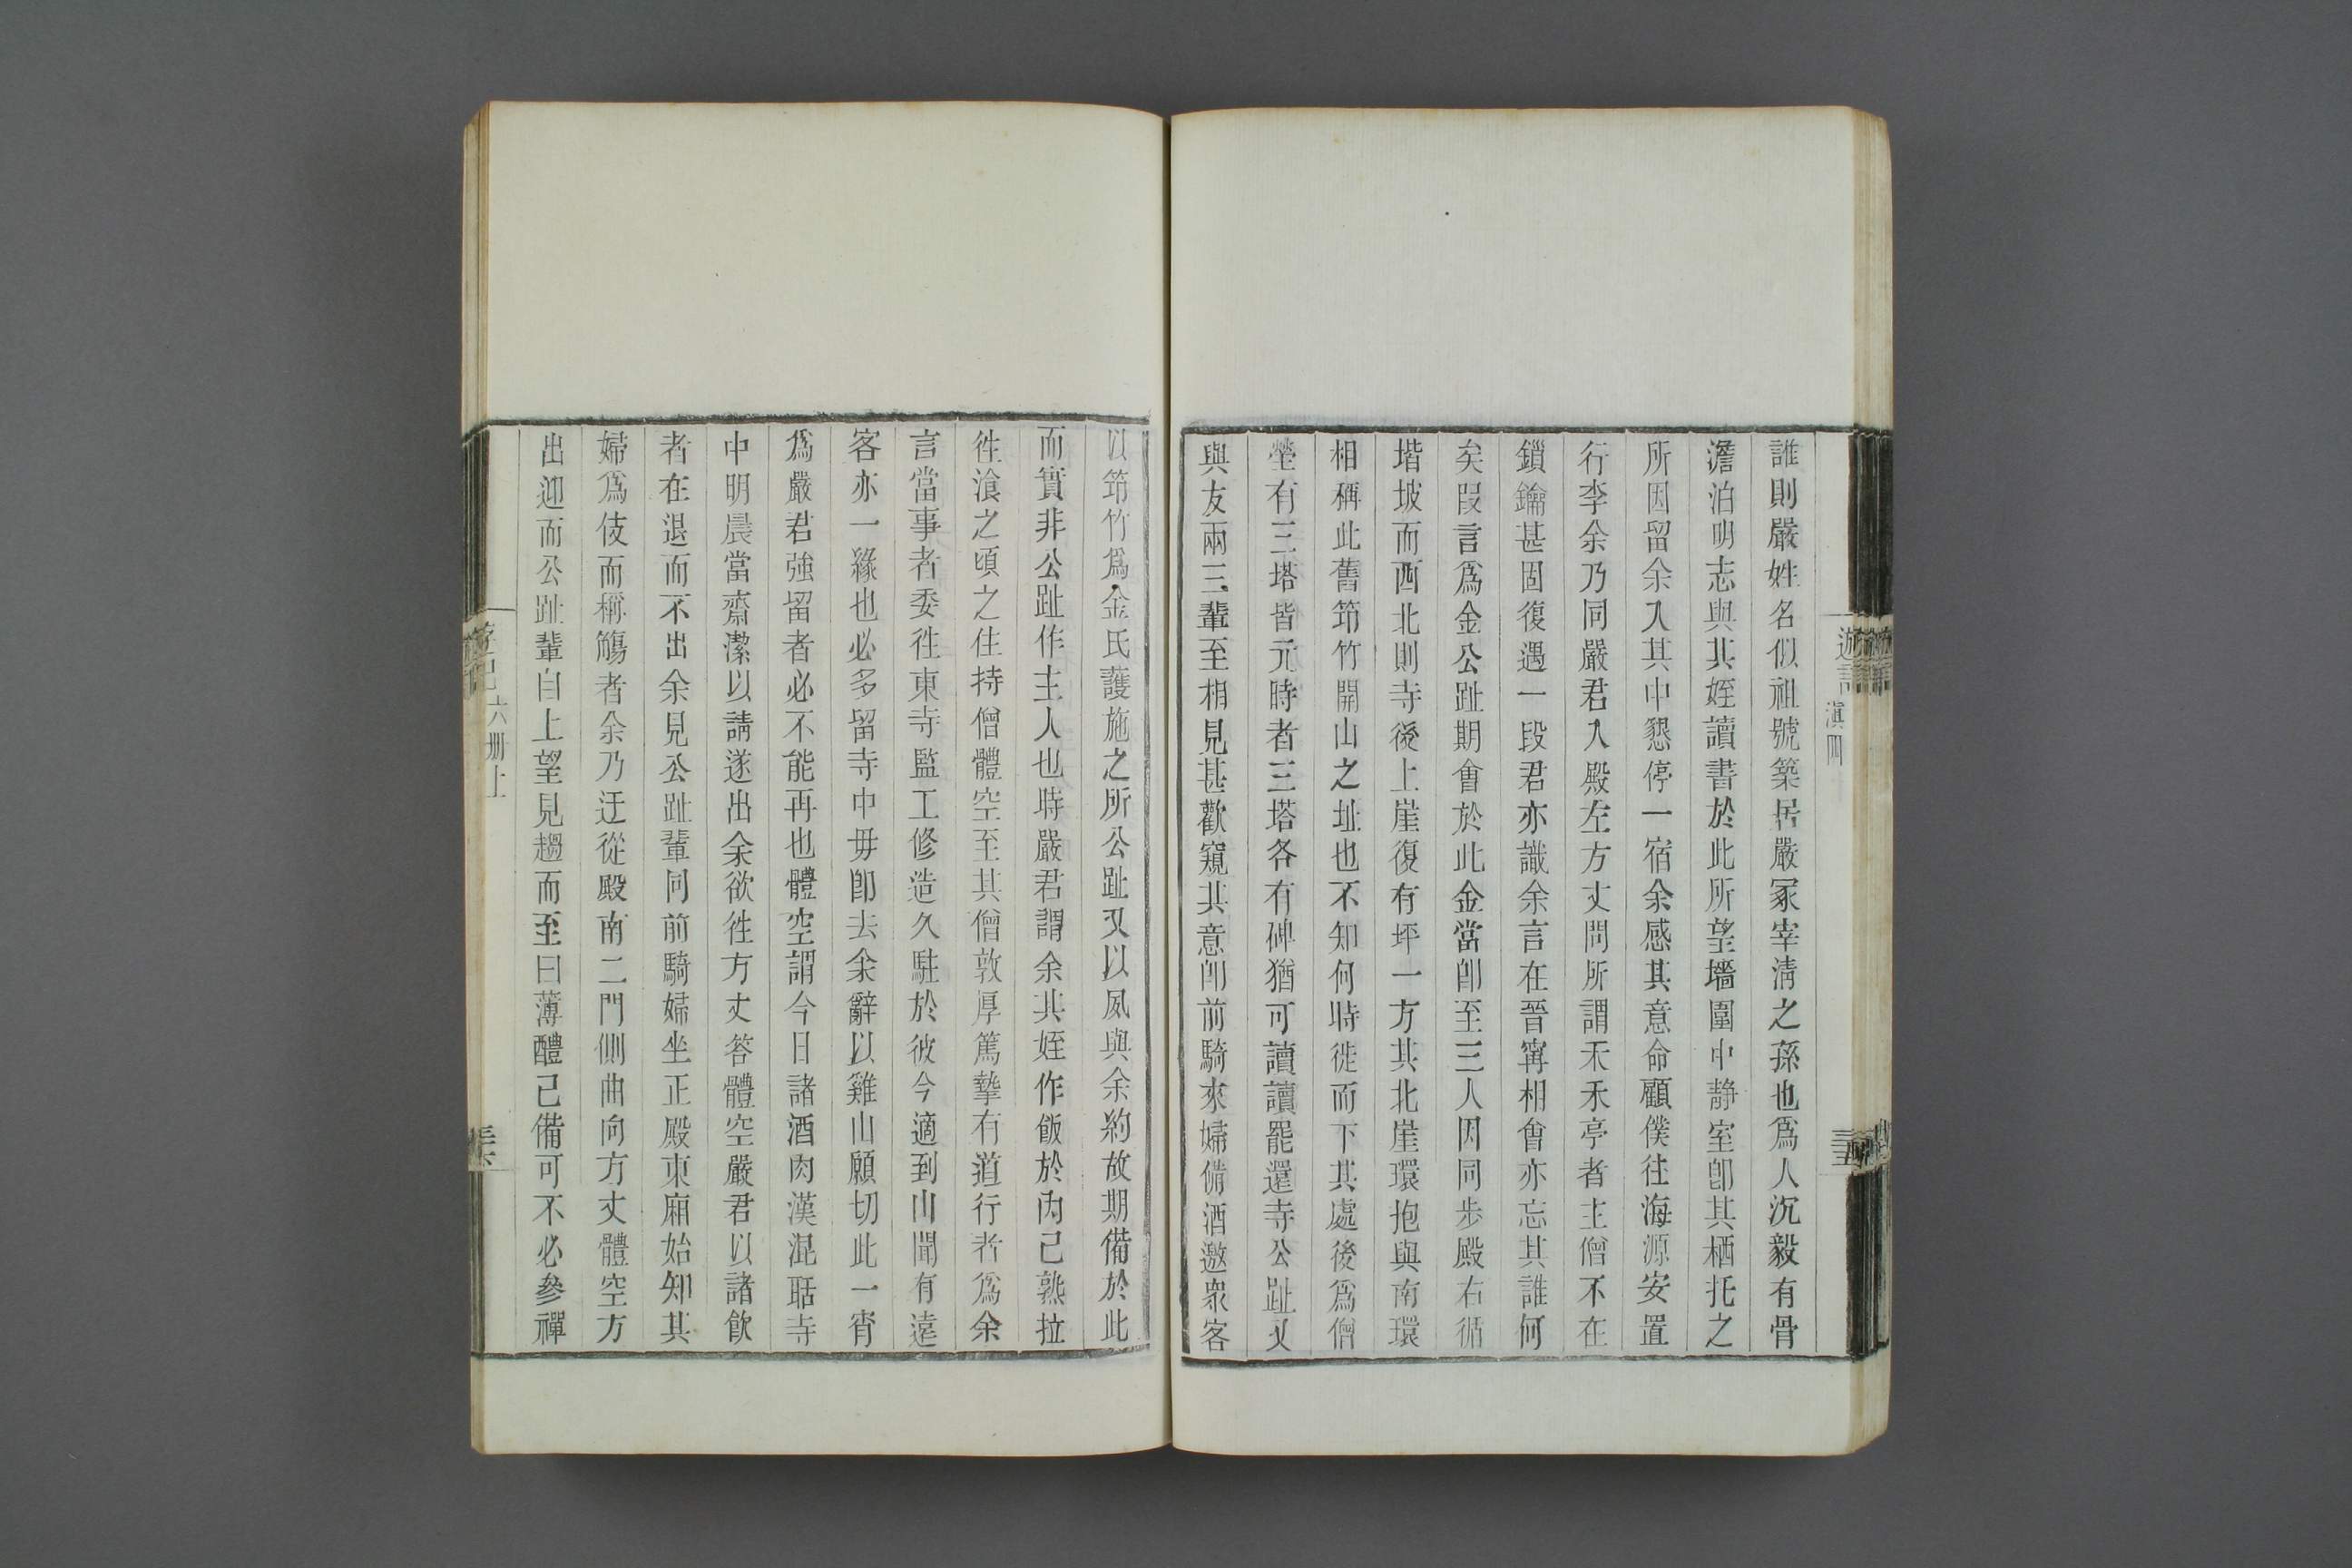 誰則嚴姓名似祖號築居嚴冢宰淸之孫也爲人沉毅有骨
澹泊明志與其姪讀書於此所望墻圍中静室卽其栖托之
所因留余入其中懇停一宿余感其意命顧僕徃海源安置
行李余乃同嚴君入殿左方丈問所謂禾禾亭者主僧不在
鎖鑰甚固復遇一段君亦識余言在晉寗相會亦忘其誰何
矣段言爲金公趾期會於此金當卽至三人因同步殿右循
堦坡而西北則寺後上崖復有坪一方其北崖環抱與南環
相稱此舊筇竹開山之址也不知何時徙而下其處後爲僧
塋有三塔皆元時者三塔各有碑猶可讀讀罷還寺公趾又
與友兩三輩至相見甚歡窺其意卽前騎來婦備酒邀衆客
以筇竹爲金氏護施之所公趾又以夙與余約故期備於此
而實非公趾作主人也時嚴君謂余其姪作飯於內已熟拉
徃湌之頃之住持僧體空至其僧敦厚篤摯有道行者爲余
言當事者委徃東寺監工修造久駐於彼今適到山聞有遠
客亦一緣也必多留寺中毋卽去余辭以雞山願切此一宵
爲嚴君強留者必不能再也體空謂今日諸酒肉漢混聒寺
中明晨當齋潔以請遂出余欲徃方丈答體空嚴君以諸飮
者在退而不出余見公趾輩同前騎婦坐正殿東廂始知其
婦爲伎而稱觴者余乃迂從殿南二門側曲向方丈體空方
出迎而公趾輩自上望見趨而至曰薄醴已備可不必參禪
遊記
滇四
三五
遊記
六册上